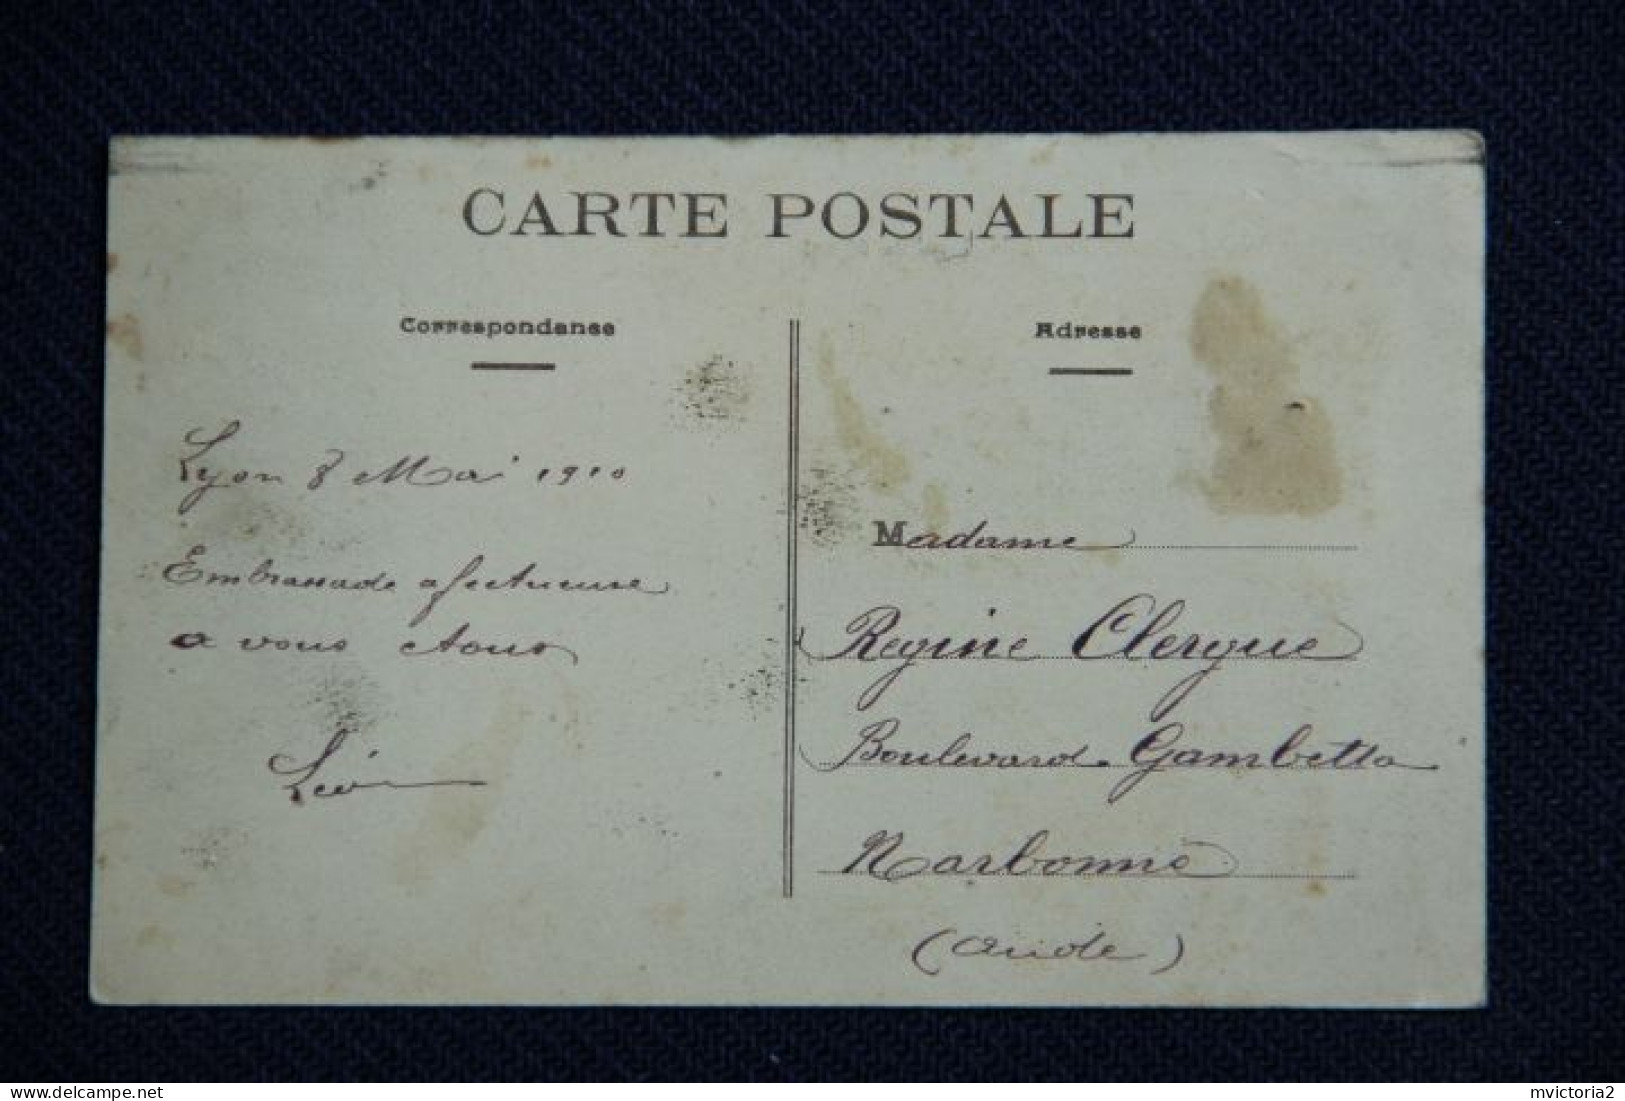 CARTE POSTALE
Correspondance
Lyon 8 Mai 1910
Embrassade afectueuse
a vous etous
Léo
Adresse
Madame
Regine Clergue
Boulevard Gambetta
Narbonne
(Aude)
mvictoria2